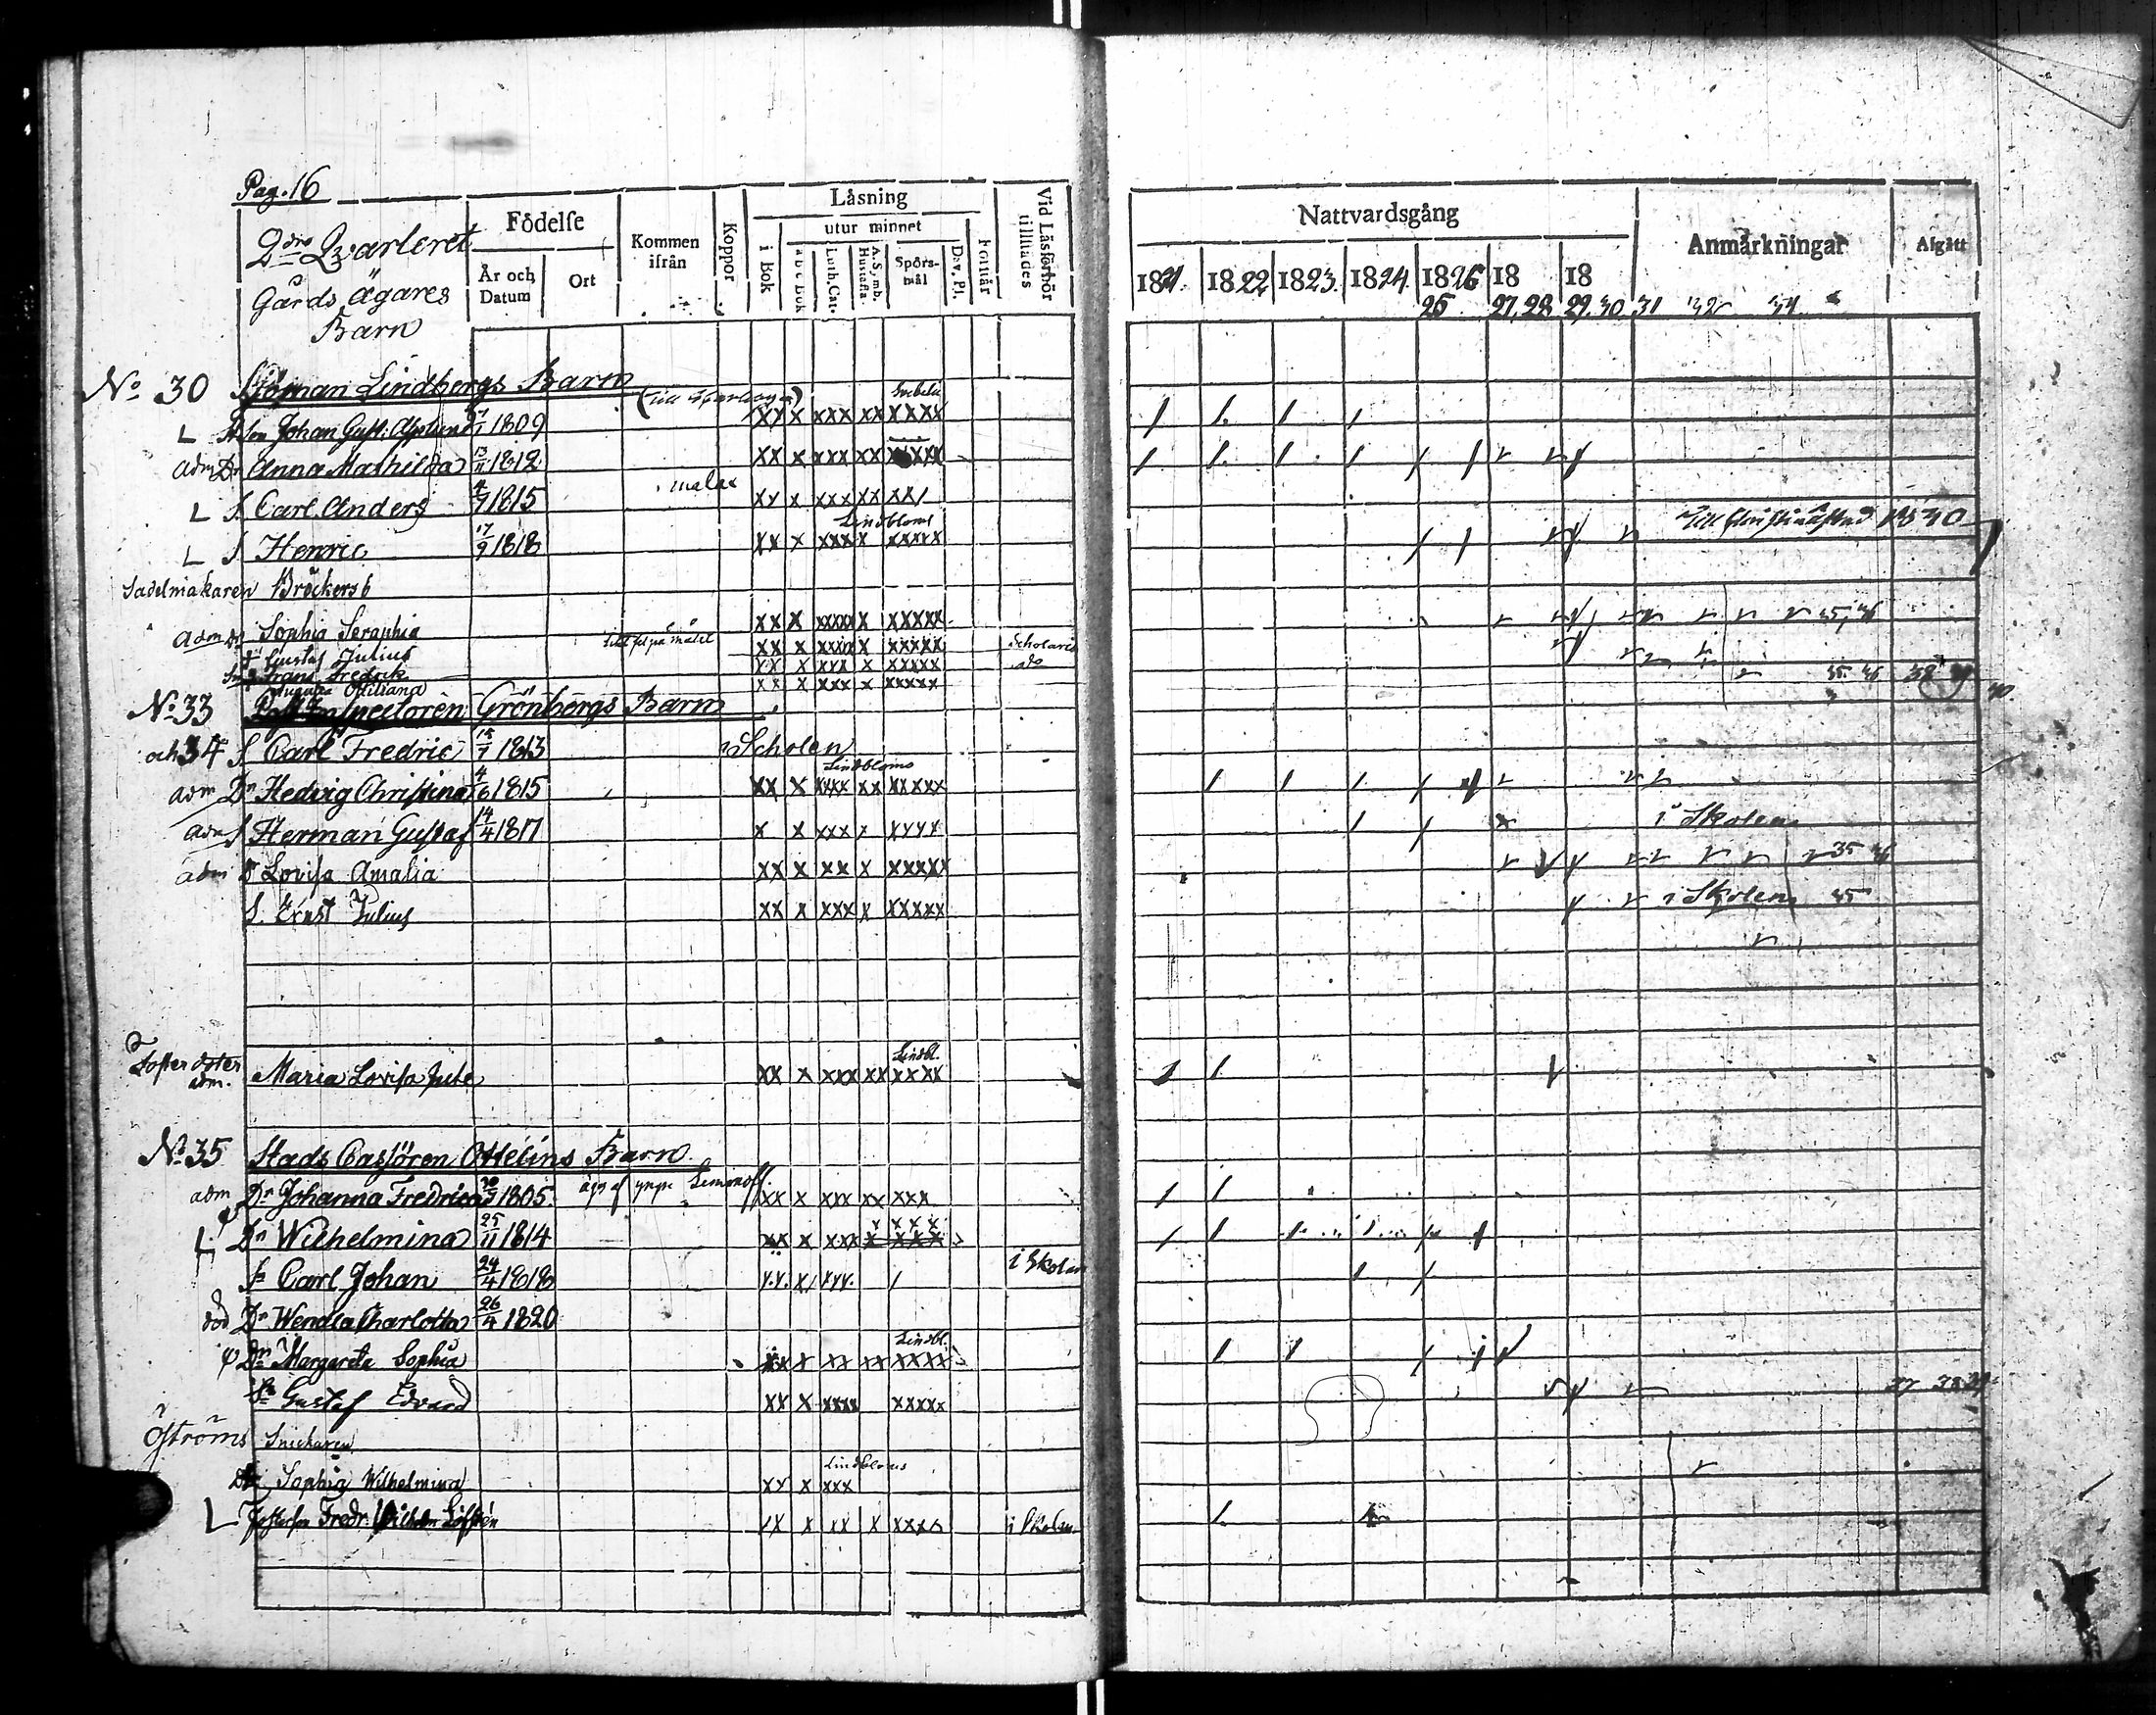 Pag. 16
2dra Qvarteret
Gårds Ägares
Barn
Födelse
År och Datum
Ort
Kommen ifrån
Koppor
Läsning
i Bok
utur minnet
a b c Bok
Luth. Cat.
A. S. mb. Hustafla.
Spörsmål
Dav. Ps.
Förstår
Vid Läsförhör tillstädes
Nattvardsgång
1821. 1822 1823. 1824. 1826 18 18
25 27, 28 29, 30 31 32 34
Anmärkningar
Afgått
No 30 Lindbergs Barn
L Johan Gust. 1809 xx x xxx xx xxxx
adm Dr Anna Mathilda 1812 xx x xxx xx
L S. Carl Anders 4/7 1815 malax xx x xxx xx xx/
Lindbloms
L S Henric 17/9 1818 xx x xxx x xxxxx 1830
Sadelmakaren Bröckers 6
adm Dr Sophia Seraphia xx x xxxxx x xxxxx 35, 36
S Gustaf Julius xx x xxxx x xxxxx Scholaris
Frans Fredrik xx x xxx x xxxxx do
Augusta Ottiliana xx x xxx x xxxxx 35. 36 38 39 40
No 33 Inspectoren Grönbergs Barn
och 34 S Carl Fredric 1813 i Scholan
Lindbloms
adm Dr Hedvig Christina 4/6 1815 xx x xxxx xx xxxxx
adm S Herman Gustaf 14/4 1817 x x xxx x xxxx i Skolan
adm D Lovisa Amalia xx x xx x xxxxx 35 36
S. Ernst Julius xx x xxx x xxxxx i Skolan 35
Lindbl.
Foster doter
adm. Maria Lovisa xx x xxx xx xxxx
No 35 Stads Cassören Ottelins Barn
adm Dr Johanna Fredrica 1805. xx x xxx xx xxx
L Dr Wilhelmina 25/11 1814 xx x xxx x xxx
Sn Carl Johan 24/4 1818 x.x. x, xxx. / i Skolan
död Dr Wendla Charlotta 26/4 1820
Lindbl.
Dr Margareta Sophia xx x xx xx xxxx
Sn Gustaf Edvard xx x xxxx xxxxx 37 38 39
Öströms Snickaren
Lindbloms
Dr Sophia Wilhelmina xx x xxx
L Fosterson Fredr. Wilhelm Löfsten xx x xx x xxxx i Skolan